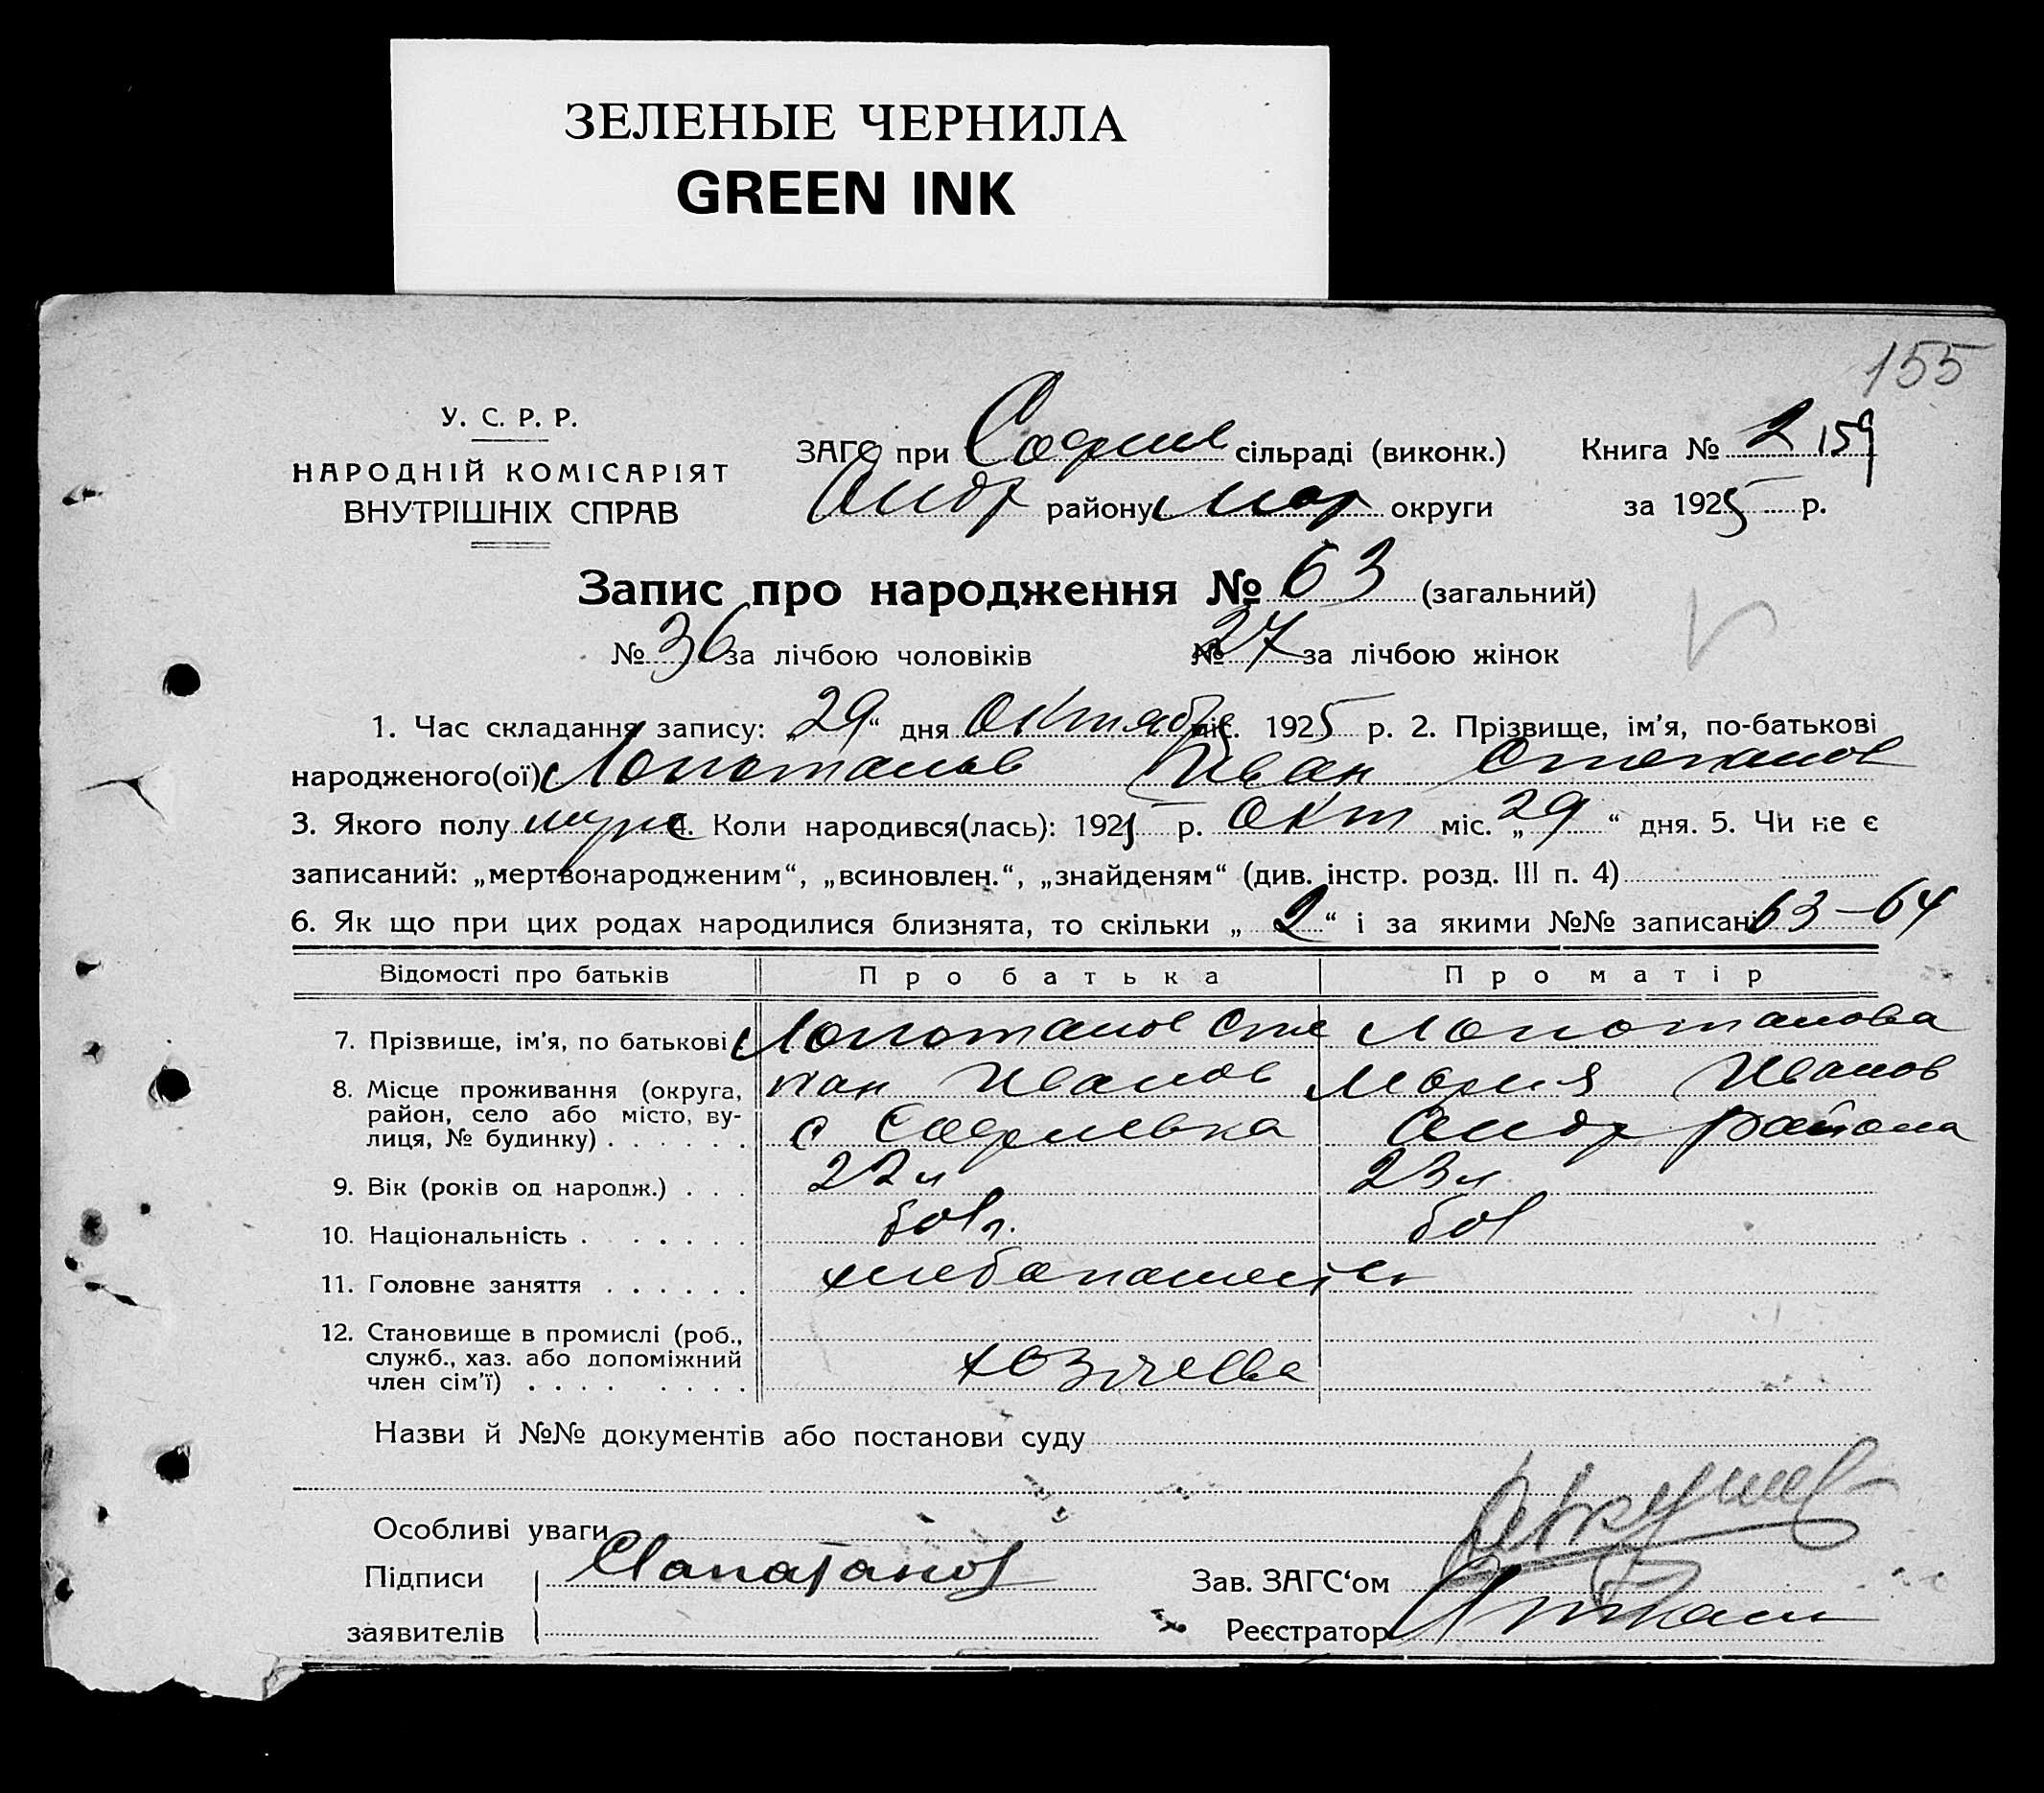 ЗЕЛЕНЫЕ ЧЕРНИЛА
GREEN INK
155
У. С. Р. Р.
НАРОДНІЙ КОМІСАРІЯТ
ВНУТРІШНІХ СПРАВ
ЗАГС при Софиев сільраді (виконк.)
Андр району Мар округи
Книга № 2 159
за 1925 р.
Запис про народження № 63 (загальний)
№ 36 за лічбою чоловіків № 27 за лічбою жінок
1. Час складання запису: „29“ дня Октября міс. 1925 р. 2. Прізвище, ім'я, по-батькові
народженого(ої) Лопотанов Иван Степанов
3. Якого полу муж 4. Коли народився(лась): 1925 р. Окт міс. „29“ дня. 5. Чи не є
записаний: „мертвонародженим“, „всиновлен.“, „знайденям“ (див. інстр. розд. III п. 4)
6. Як що при цих родах народилися близнята, то скільки „2“ і за якими №№ записані 63-64
Відомості про батьків Про батька Про матір
7. Прізвище, ім'я, по батькові Лопотанов Сте Лопотанова
8. Місце проживання (округа, пан Иванов Мария Иванов
район, село або місто, ву-
лиця, № будинку) . . . . . . с Софиевка Андр района
9. Вік (років од народж.) . . . 22 л 23 л
10. Національність . . . . . . болг. бол
11. Головне заняття . . . . . . хлебопашец
12. Становище в промислі (роб.,
служб., хаз. або допоміжний
член сім'ї) . . . . . . . .
Назви й №№ документів або постанови суду
Особливі уваги
Підписи
Зав. ЗАГС'ом
заявителів
Реєстратор